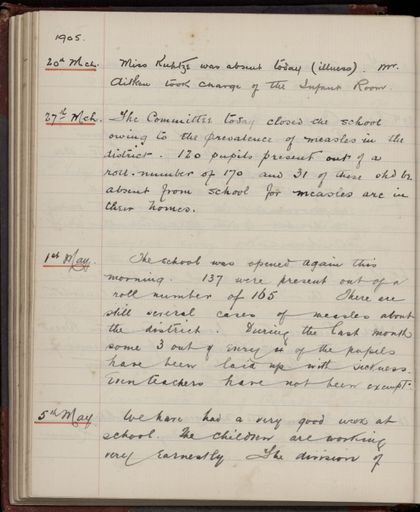 1905.
20th Mch. Miss Kuhtze was absent today (illness). Mr.
Aitken took charge of the Infant Room.
27th Mch. The Committee today closed the school
owing to the prevalence of measles in the
district. 120 pupils present out of a
roll-number of 170 and 31 of those shd be
absent from school for measles are in
their homes.
1st May. The school was opened again this
morning. 137 were present out of a
roll number of 165 There are
still several cases of measles about
the district. During the last month
some 3 out of every 4 of the pupils
have been laid up with sickness.
Even teachers have not been exempt.
5th May We have had a very good week at
school. The children are working
very earnestly The division of